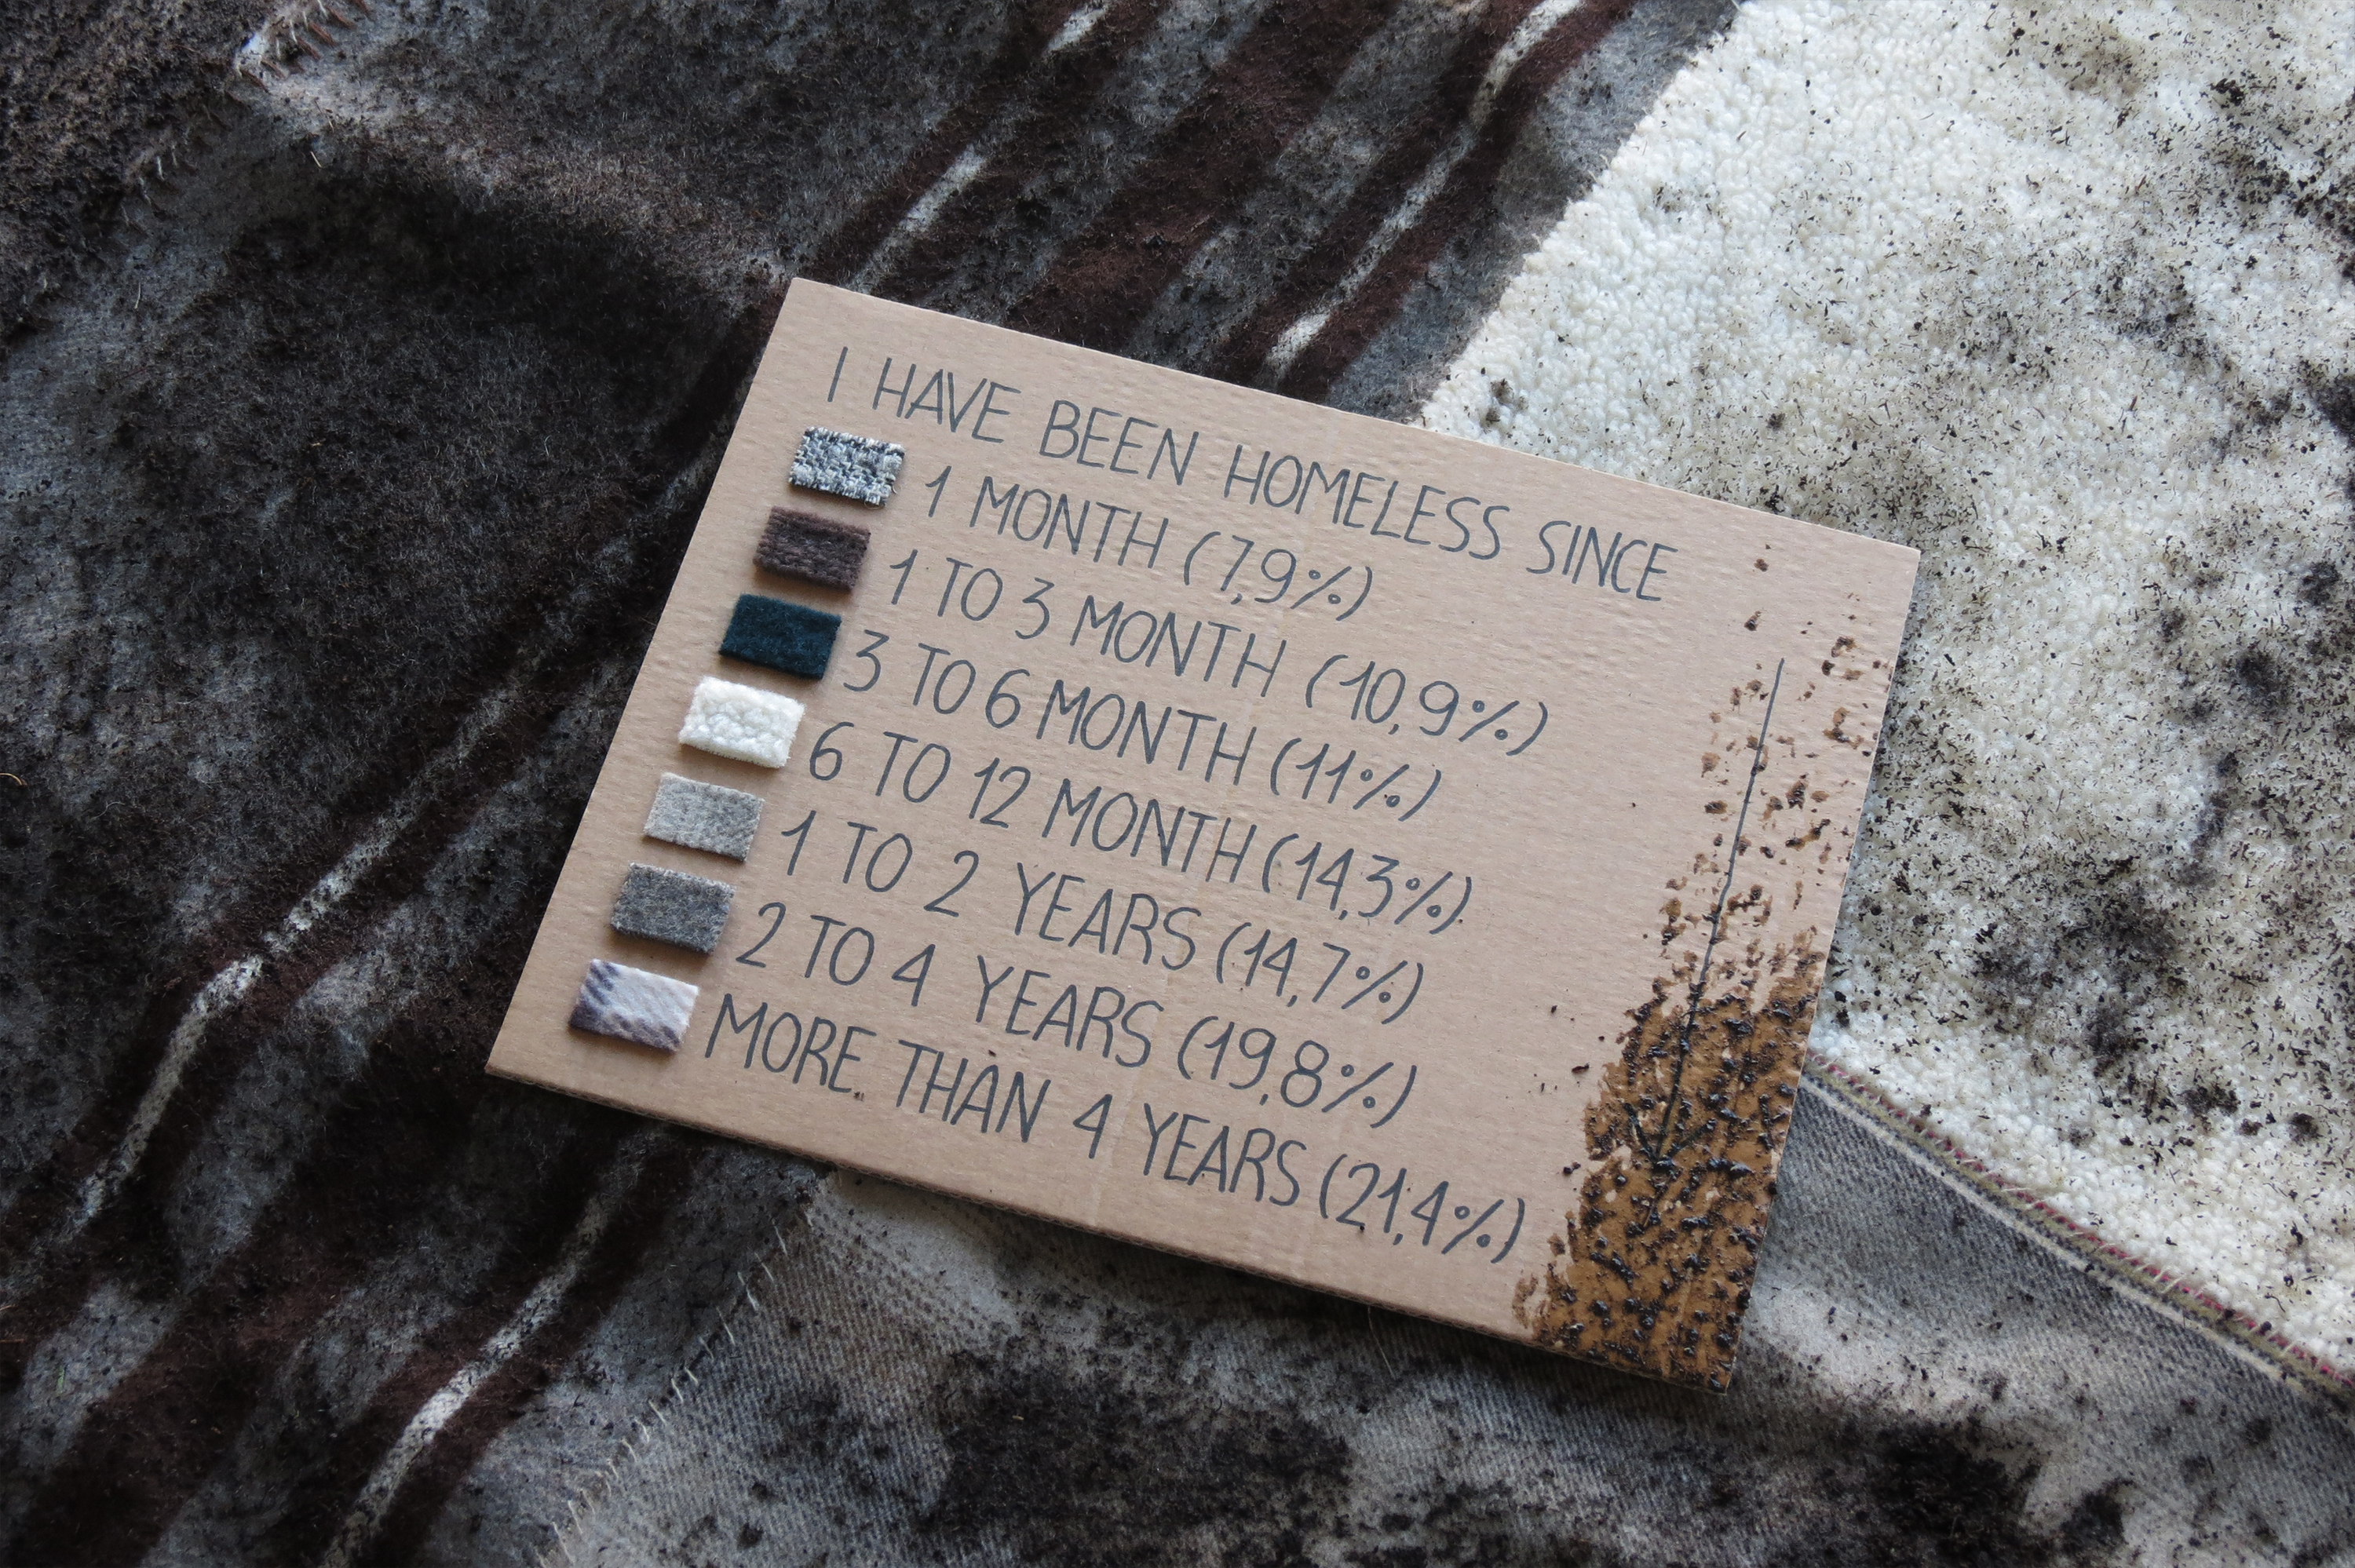 I HAVE BEEN HOMELESS SINCE
1 MONTH (7,9%)
1 TO 3 MONTH (10,9%)
3 TO 6 MONTH (11%)
6 TO 12 MONTH (14,3%)
1 TO 2 YEARS (14,7%)
2 TO 4 YEARS (19,8%)
MORE THAN 4 YEARS (21,4%)